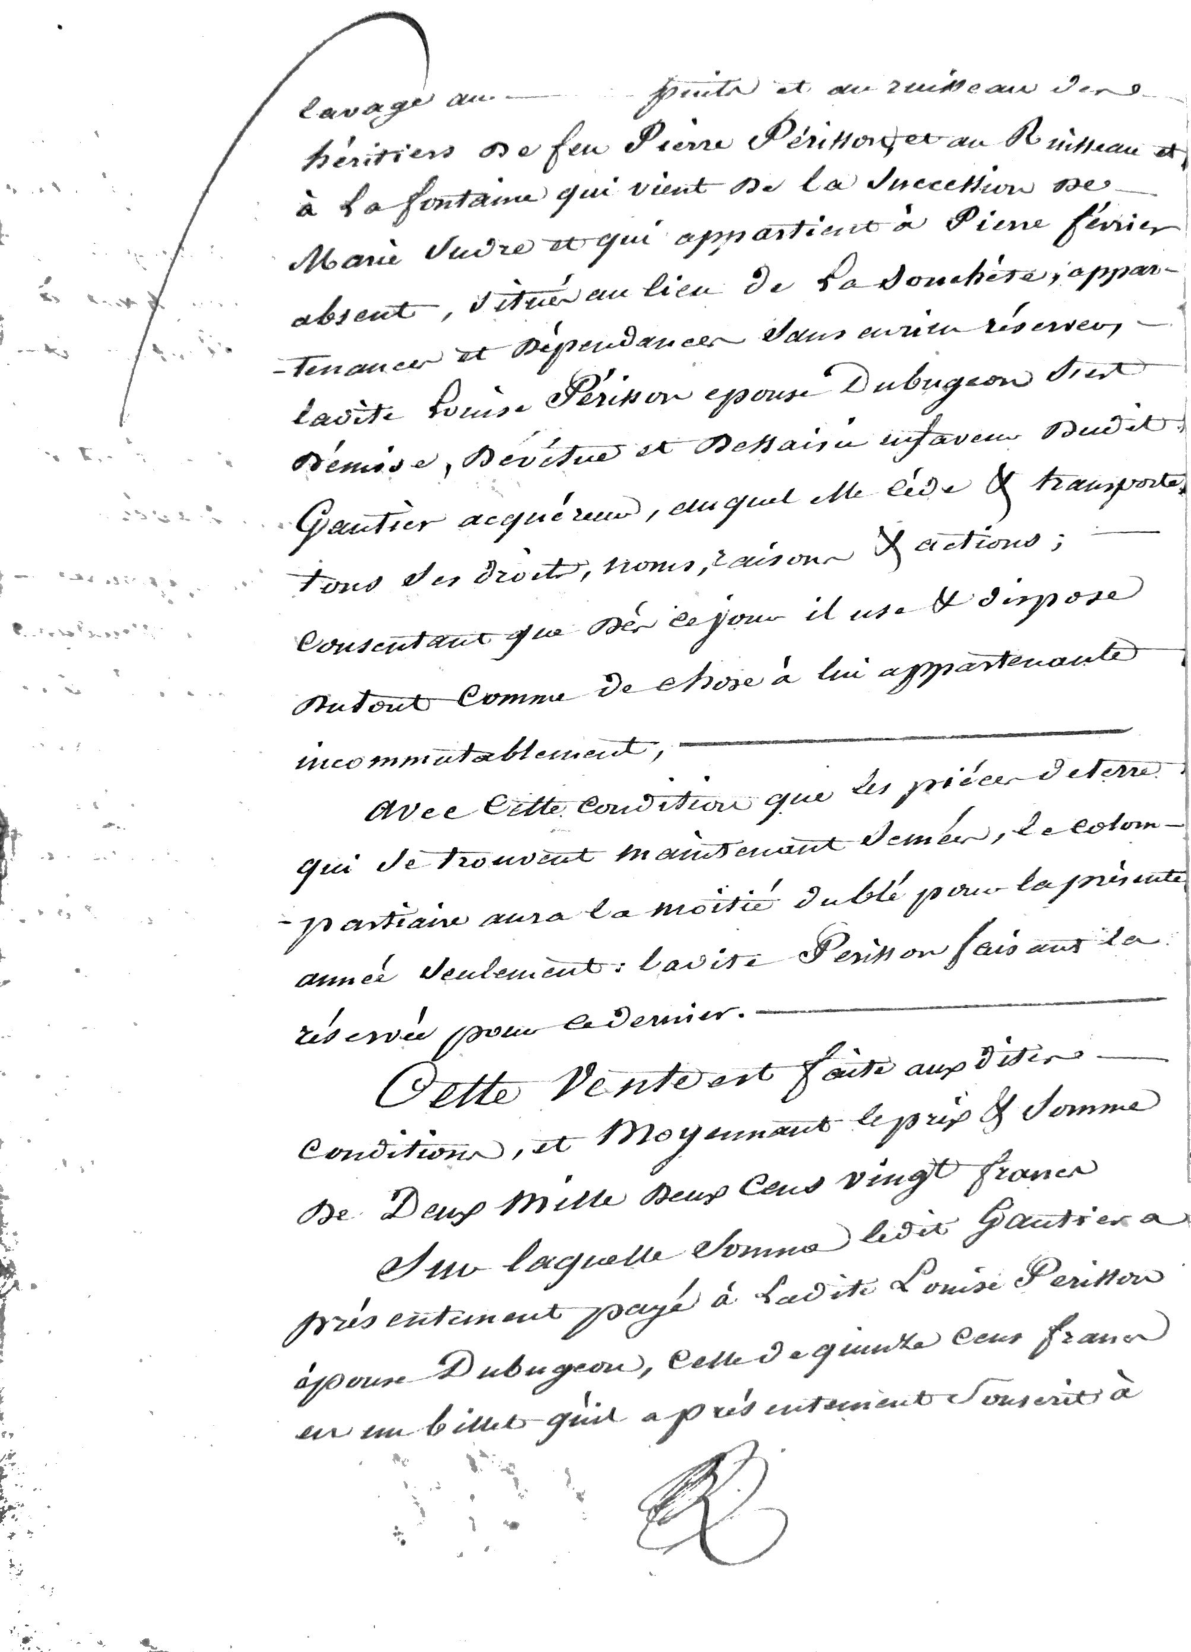 lavage au puits et au ruisseau des
héritiers de feu Pierre Périsson, et au Ruisseau et
à La fontaine qui vient de la Succession de
Marie Sudre et qui appartient à Pierre février
absent, situés au lieu de La Souchète, appar-
-tenances et dépendances sans en rien réserver,
ladite Louise Périsson epouse Dubugeon s'est
démise, dévétue et dessaisie en faveur dudit
Gautier acquéreur, auquel elle cède & transporte
tous ses droits, noms, raisons & actions ;
Consentant que dès ce jour il use & dispose
du tout Comme de chose à lui appartenante
incommutablement,
avec Cette condition que les pièces de terre
qui se trouvent maintenant semées, le colom-
-partiaire aura la moitié du blé pour la présente
année seulement : ladite Perisson faisant la
réservée pour ce dernier.
Cette Vente est faite aux dites
conditions, et Moyennant le prix & Somme
de Deux Mille deux Cens vingt francs
Sur laquelle Somme ledit Gautier a
présentement payé à Ladite Louise Perisson
épouse Dubugeon, Celle de quinze cens francs
en un billet qu'il a présentement Souscrit à